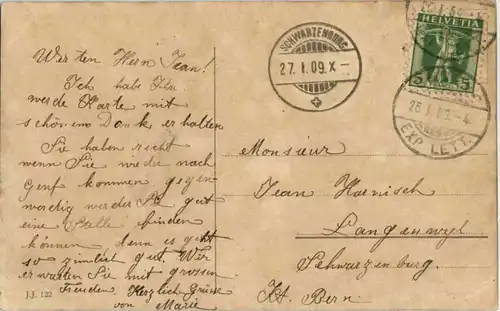 Werten Herr Jean!
Ich habe Ihre
werde Karte mit
schönem Dank erhalten
Sie haben recht
wenn Sie wieder nach
Genf kommen gegen-
werdig werder Sie gut
eine Stelle finden
können denn es geht
so zimlich gut. Wir
erwarten Sie mit grossen
Freuden. Herzlich Grüsse
von Marie
J.J. 122
SCHWARZENBURG
27. I. 09. X-
HELVETIA
5
EXP. LETT.
Monsieur
Jean Haenisch
Langenwyl
Schwarzenburg.
Kt. Bern